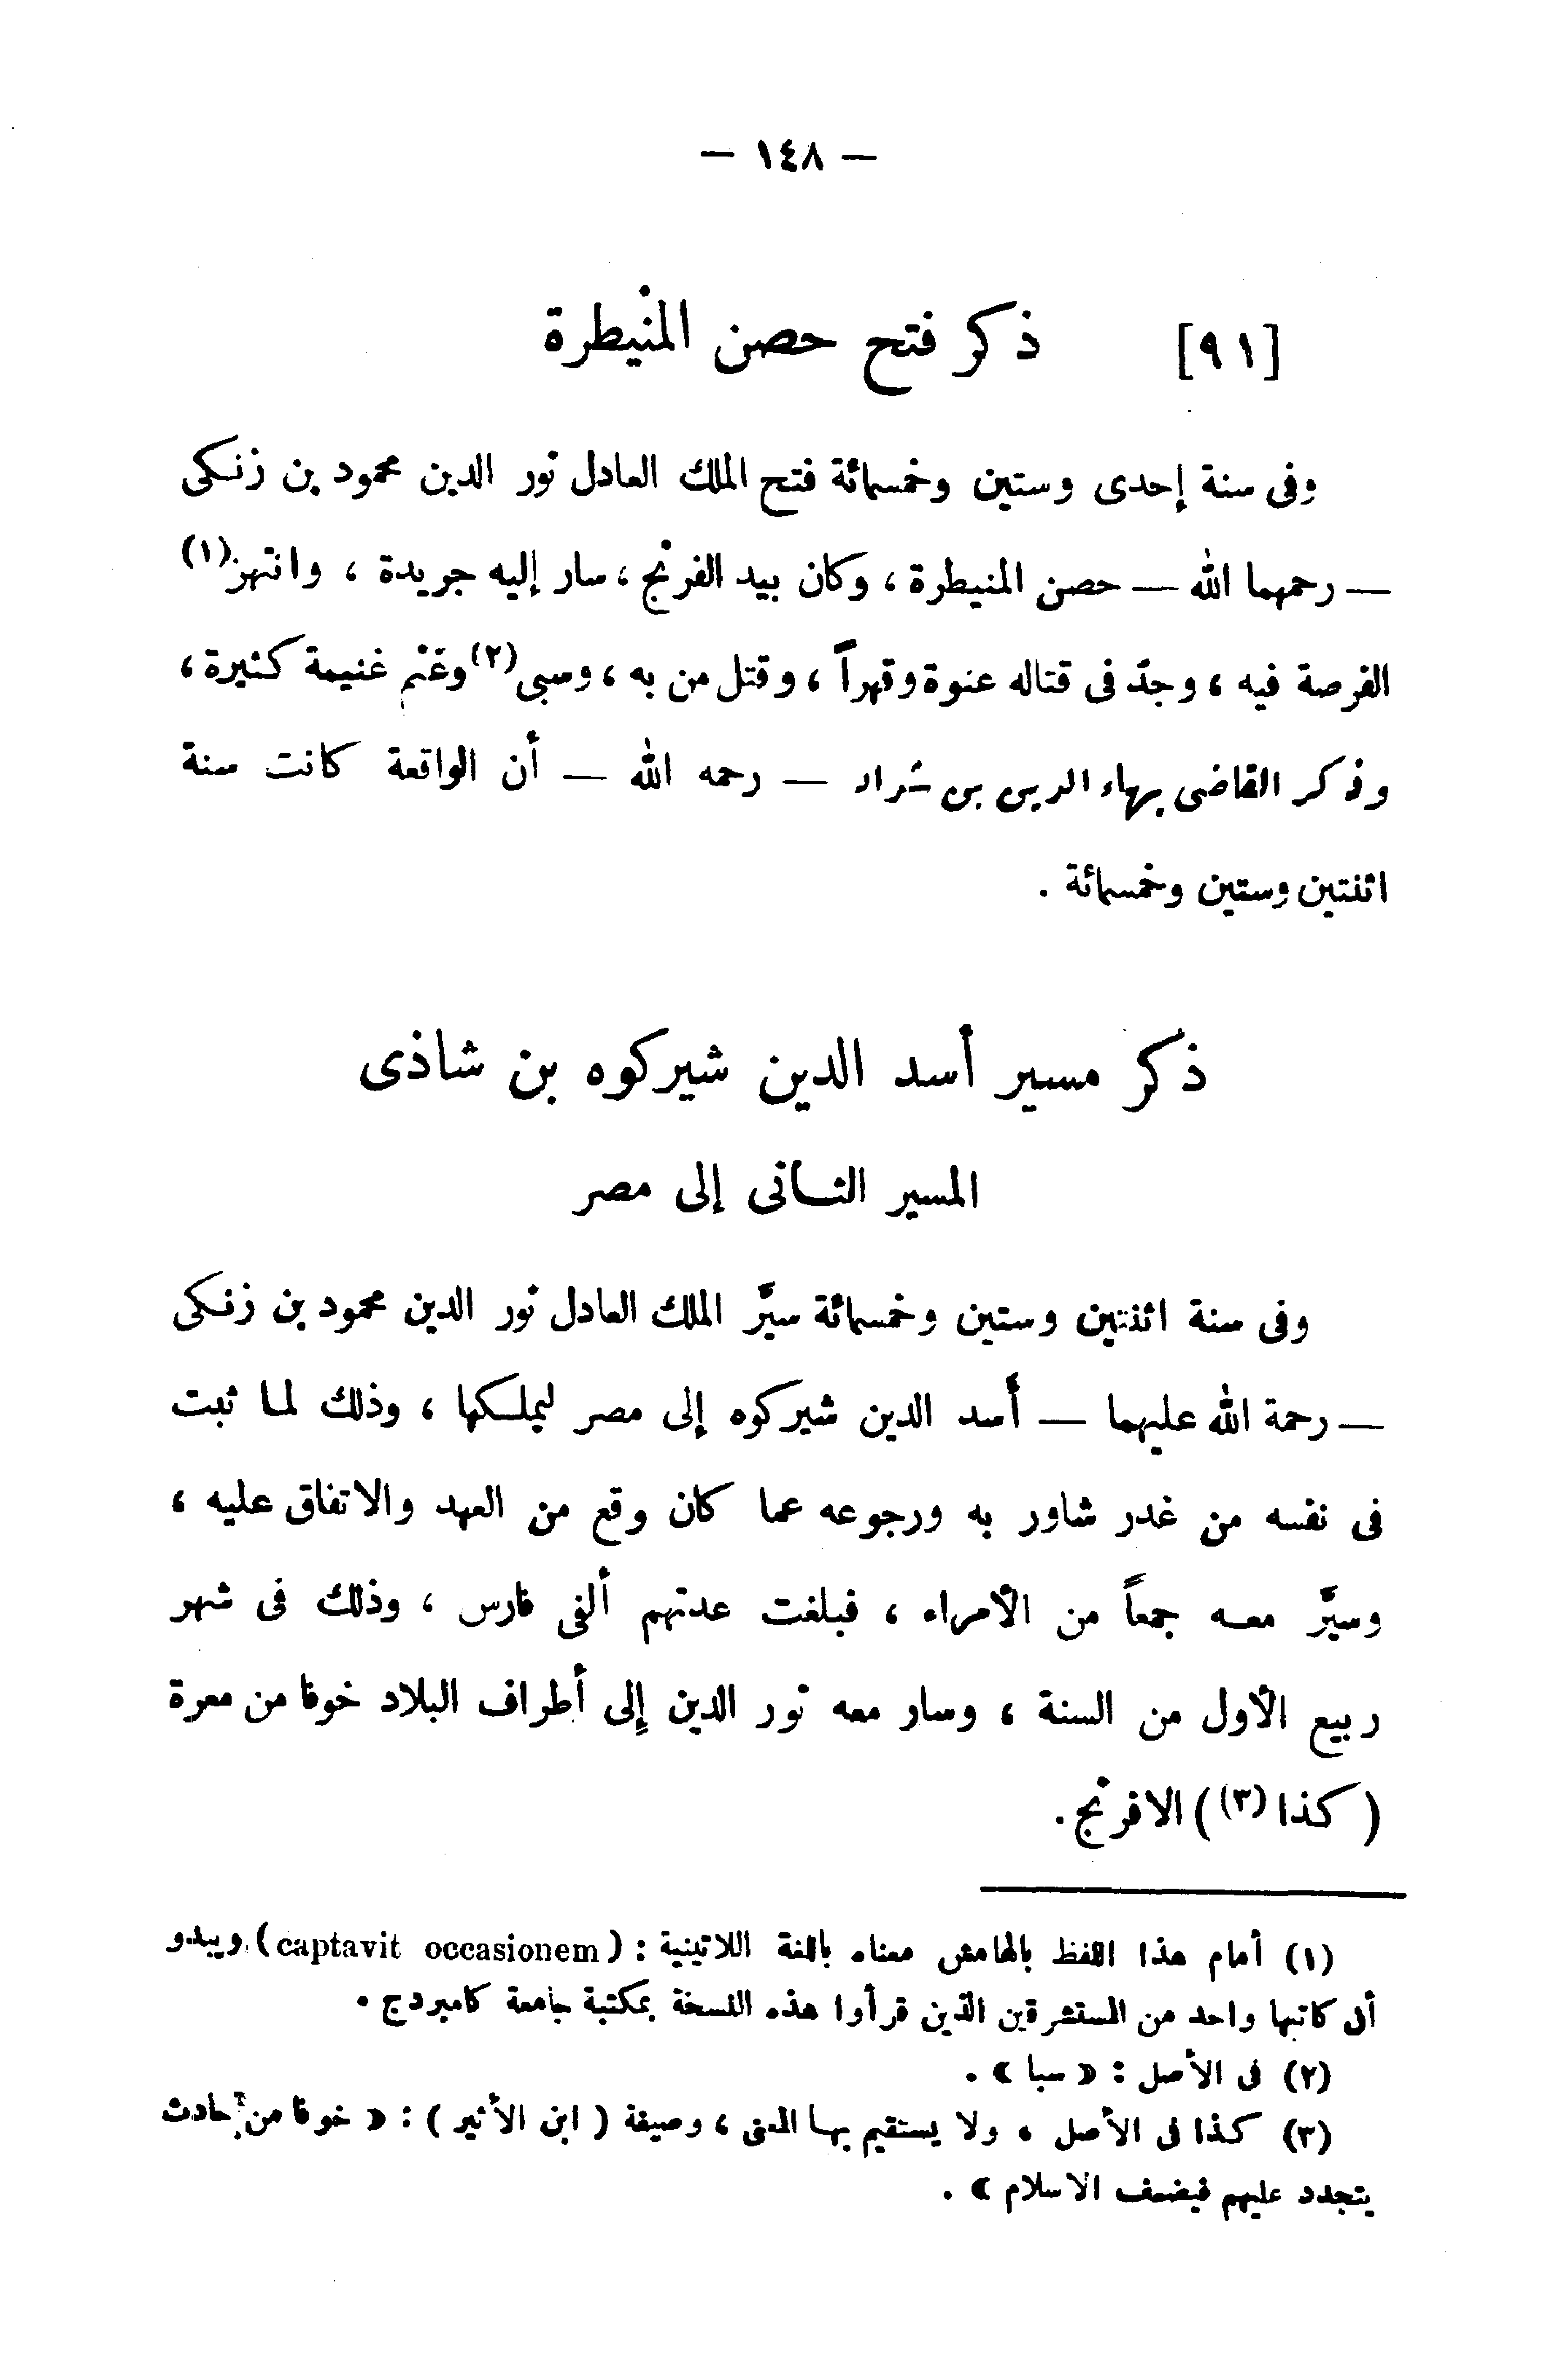 — ١٤٨ —
[٩١] ذكر فتح حصن المنيطرة
وفى سنة إحدى وستين وخمسمائة فتح الملك العادل نور الدين محمود بن زنكى
— رحمهما الله — حصن المنيطرة ، وكان بيد الفرنج ، سار إليه جريدة ، وانتهز(١)
الفرصة فيه ، وجدّ فى قتاله عنوة وقهراً ، وقتل من به ، وسبى(٢) وغنم غنيمة كثيرة ،
وذكر القاضى بهاء الدين بن شداد — رحمه الله — أن الواقعة كانت سنة
اثنتين وستين وخمسمائة .
ذكر مسير أسد الدين شيركوه بن شاذى
المسير الثانى إلى مصر
وفى سنة اثنتين وستين وخمسمائة سيَّر الملك العادل نور الدين محمود بن زنكى
— رحمة الله عليهما — أسد الدين شيركوه إلى مصر ليملكها ، وذلك لما ثبت
فى نفسه من غدر شاور به ورجوعه عما كان وقع من العهد والاتفاق عليه ،
وسيَّر معه جمعاً من الأمراء ، فبلغت عدتهم ألفى فارس ، وذلك فى شهر
ربيع الأول من السنة ، وسار معه نور الدين إلى أطراف البلاد خوفا من معرة
( كذا (٣) ) الافرنج .
(١) أمام هذا اللفظ بالهامش معناه باللغة اللاتينية : (captavit occasionem) ويبدو
أن كاتبها واحد من المستشرقين الذين قرأوا هذه النسخة بمكتبة جامعة كامبردج .
(٢) فى الأصل : « سبا » .
(٣) كذا فى الأصل ، ولا يستقيم بها المعنى ، وصيغة ( ابن الأثير ) : « خوفا من حادث
يتجدد عليهم فيضعف الاسلام » .